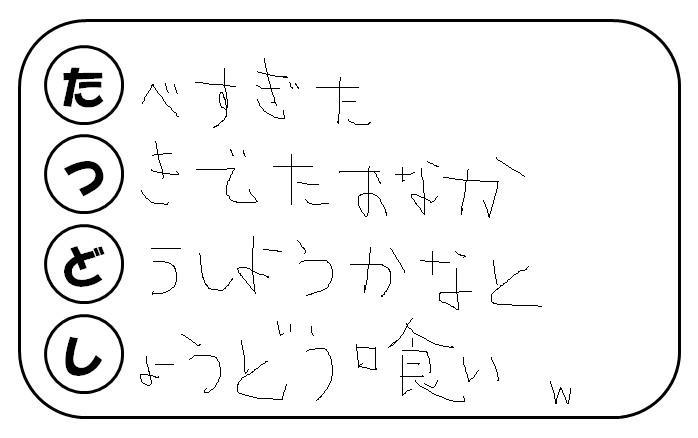 たべすぎた
つきでたおなか
どうしようかなと
しょうどう喰い w